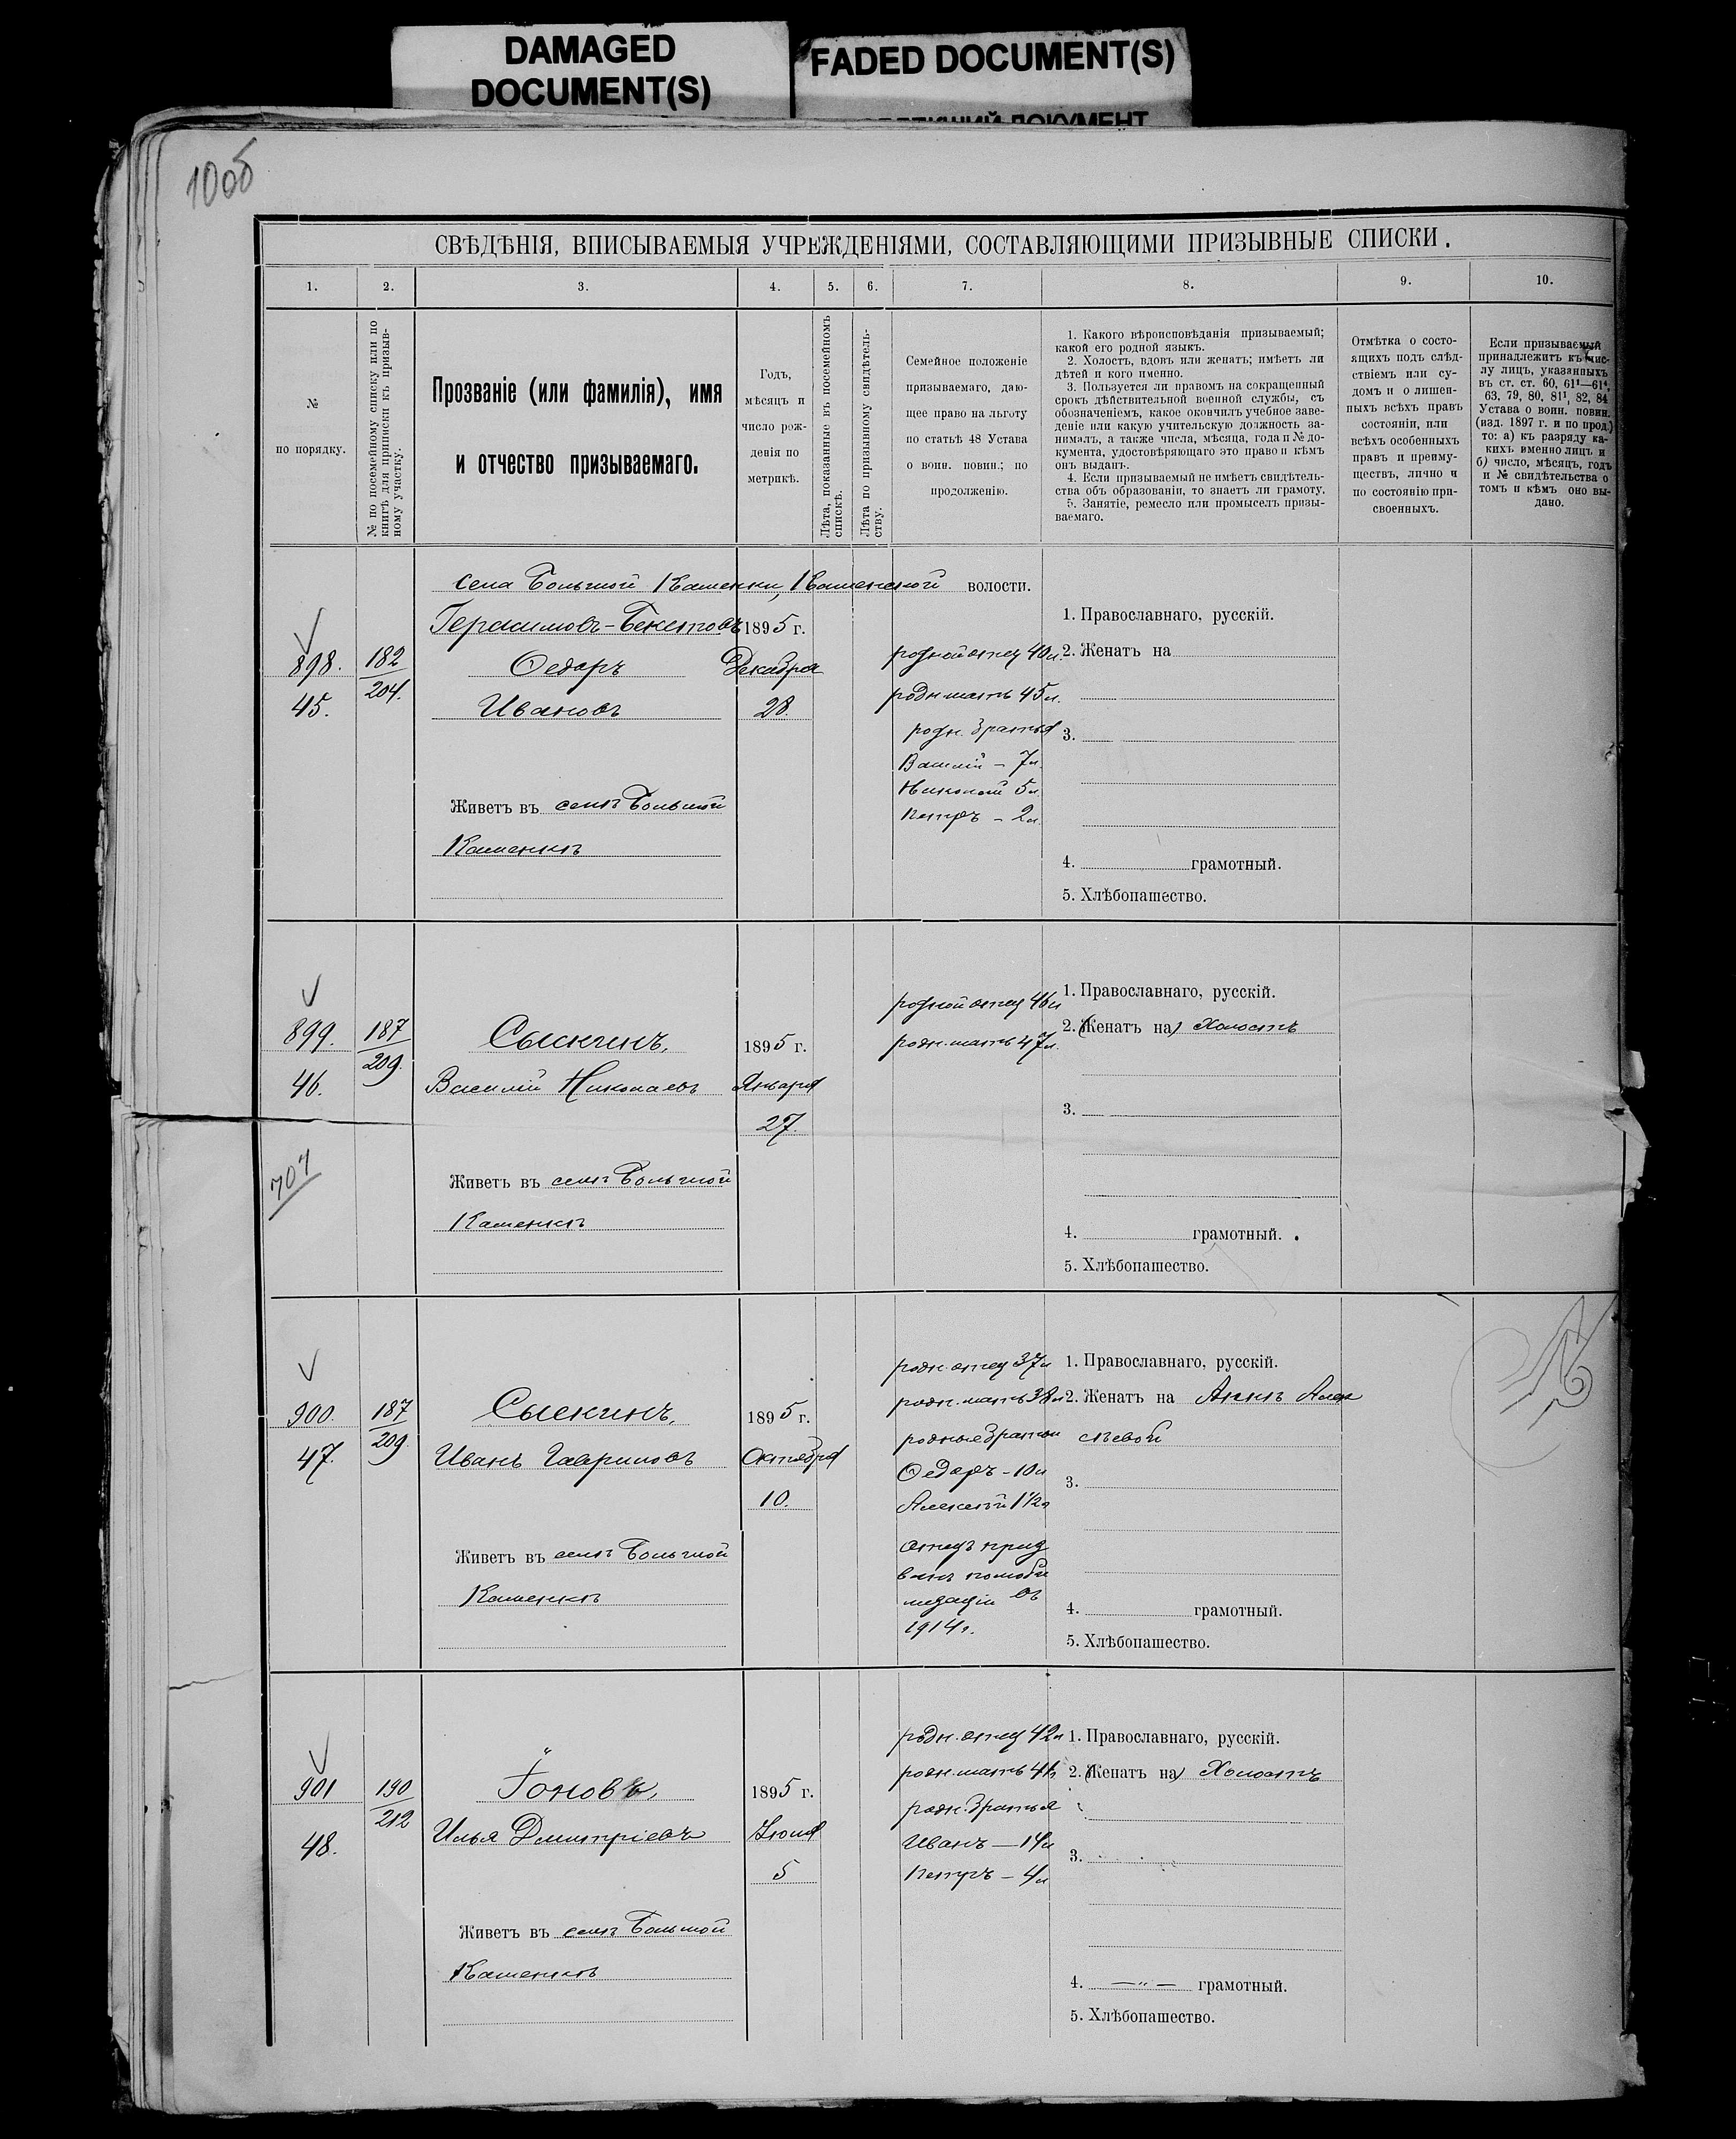 DAMAGED
DOCUMENT(S)
FADED DOCUMENT(S)
ДОКУМЕНТ
СВѢДѢНІЯ, ВПИСЫВАЕМЫЯ УЧРЕЖДЕНІЯМИ, СОСТАВЛЯЮЩИМИ ПРИЗЫВНЫЕ СПИСКИ.
1. 2. 3. 4. 5. 6. 7. 8. 9. 10.
№
по порядку.
№ по посемейному списку или по
книгѣ для приписки къ призыв-
ному участку.
Прозваніе (или фамилія), имя
и отчество призываемаго.
Годъ,
мѣсяцъ и
число рож-
денія по
метрикѣ.
Лѣта, показанные въ посемейномъ
спискѣ.
Лѣта по призывному свидѣтель-
ству.
Семейное положеніе
призываемаго, даю-
щее право на льготу
по статьѣ 48 Устава
о воин. повин.; по
продолженію.
1. Какого вѣроисповѣданія призываемый;
какой его родной языкъ.
2. Холостъ, вдовъ или женатъ; имѣетъ ли
дѣтей и кого именно.
3. Пользуется ли правомъ на сокращенный
срокъ дѣйствительной военной службы, съ
обозначеніемъ, какое окончилъ учебное заве-
деніе или какую учительскую должность за-
нималъ, а также числа, мѣсяца, года и № до-
кумента, удостовѣряющаго это право и кѣмъ
онъ выданъ.
4. Если призываемый не имѣетъ свидѣтель-
ства объ образованіи, то знаетъ ли грамоту.
5. Занятіе, ремесло или промыселъ призы-
ваемаго.
Отмѣтка о состо-
ящихъ подъ слѣд-
ствіемъ или су-
домъ и о лишен-
ныхъ всѣхъ правъ
состоянія, или
всѣхъ особенныхъ
правъ и преиму-
ществъ, лично и
по состоянію при-
своенныхъ.
Если призываемый
принадлежитъ къ чис-
лу лицъ, указанныхъ
въ ст. ст. 60, 61¹—61⁴,
63, 79, 80, 81¹, 82, 84
Устава о воин. повин.
(изд. 1897 г. и по прод.)
то: а) къ разряду ка-
кихъ именно лицъ и
б) число, мѣсяцъ, годъ
и № свидѣтельства о
томъ и кѣмъ оно вы-
дано.
села Большой Каменки, Каменской волости.
898.
45.
182
204.
Герасимовъ-Бекетовъ
Ѳедоръ
Ивановъ
1895 г.
Декабря
28.
Живетъ въ селѣ Большой
Каменкѣ
родной отец 40 л.
родн. мать 45 л.
родн. братья
Василій – 7 л.
Николай 5 л.
Петръ – 2 л.
1. Православнаго, русскій.
2. Женатъ на
3.
4. грамотный.
5. Хлѣбопашество.
899.
46.
707
187
209.
Сыскинъ,
Василій Николаевъ
1895 г.
Января
27.
Живетъ въ селѣ Большой
Каменкѣ
родной отец 46 л
родн. мать 47 л.
1. Православнаго, русскій.
2. (Женатъ на) Холостъ
3.
4. грамотный.
5. Хлѣбопашество.
900.
47.
187
209.
Сыскинъ,
Иванъ Гавриловъ
1895 г.
Октября
10.
Живетъ въ селѣ Большой
Каменкѣ
родн. отец 37 л
родн. мать 38 л
родные братья
Ѳедоръ – 10 л
Алексѣй 1 1/2 г
отецъ приз
ванъ по моби
лизаціи въ
1914 г.
1. Православнаго, русскій.
2. Женатъ на Аннѣ Алек
сѣевой
3.
4. грамотный.
5. Хлѣбопашество.
901
48.
190
212
Іоновъ,
Илья Дмитріевъ
1895 г.
Іюля
5
Живетъ въ селѣ Большой
Каменкѣ
родн. отец 42 л
родн. мать 41
родн. братья
Иванъ — 14 л
Петръ – 4 л
1. Православнаго, русскій.
2. (Женатъ на) Холостъ
3.
4. — " — грамотный.
5. Хлѣбопашество.